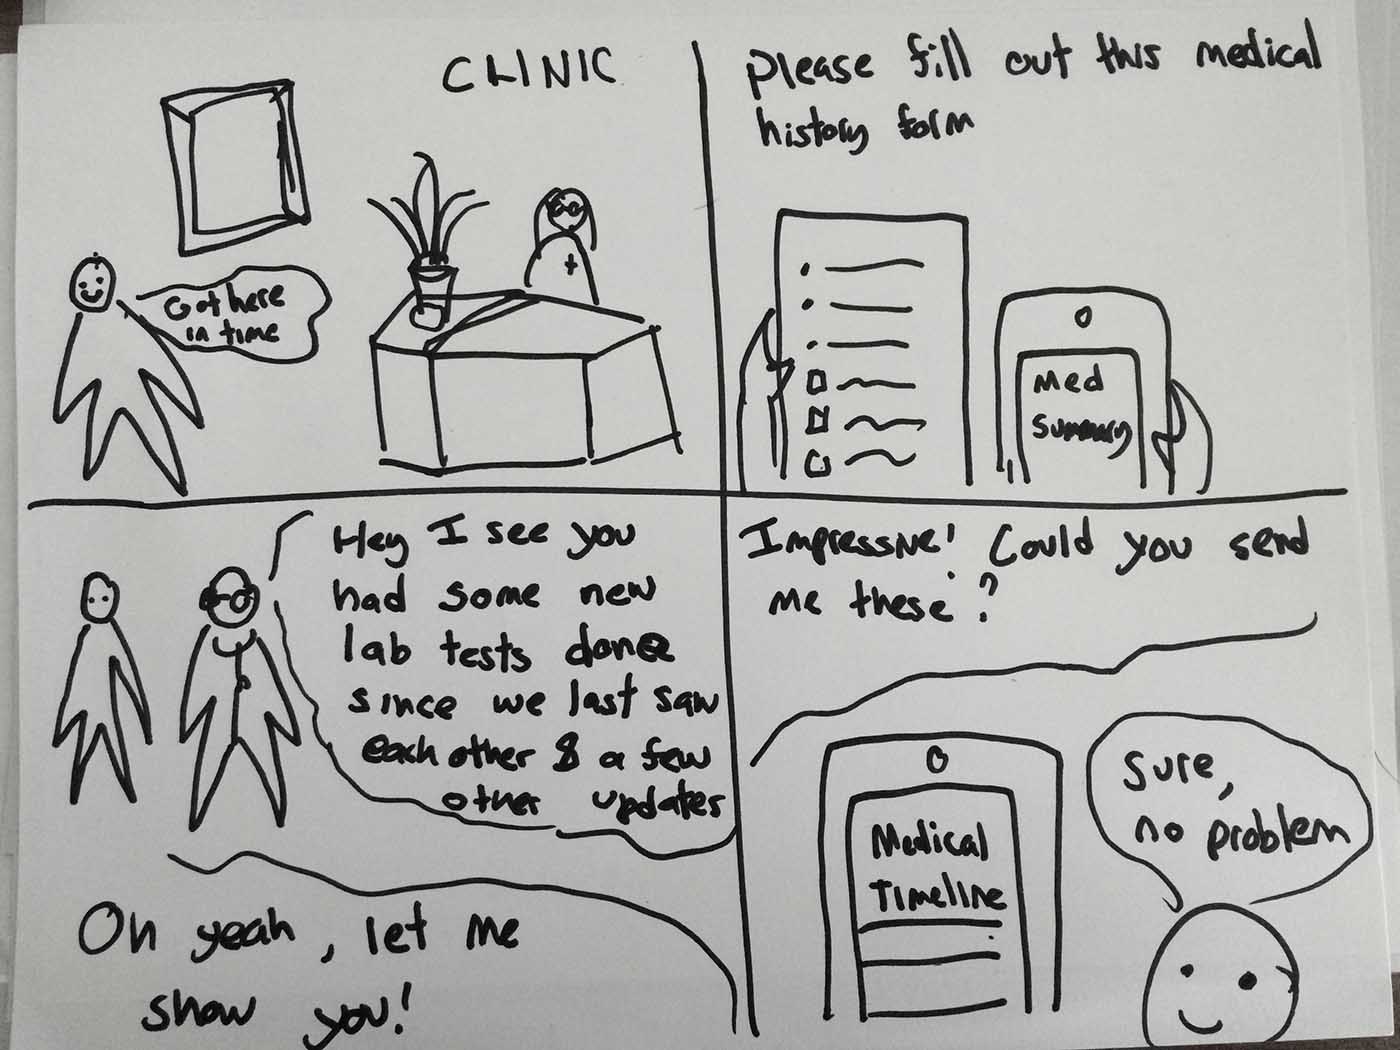 CLINIC
Got here
in time
please fill out this medical
history form
Med
Summary
Hey I see you
had some new
lab tests done
since we last saw
each other & a few
other updates
Oh yeah, let me
show you!
Impressive! Could you send
me these?
Medical
Timeline
Sure,
no problem